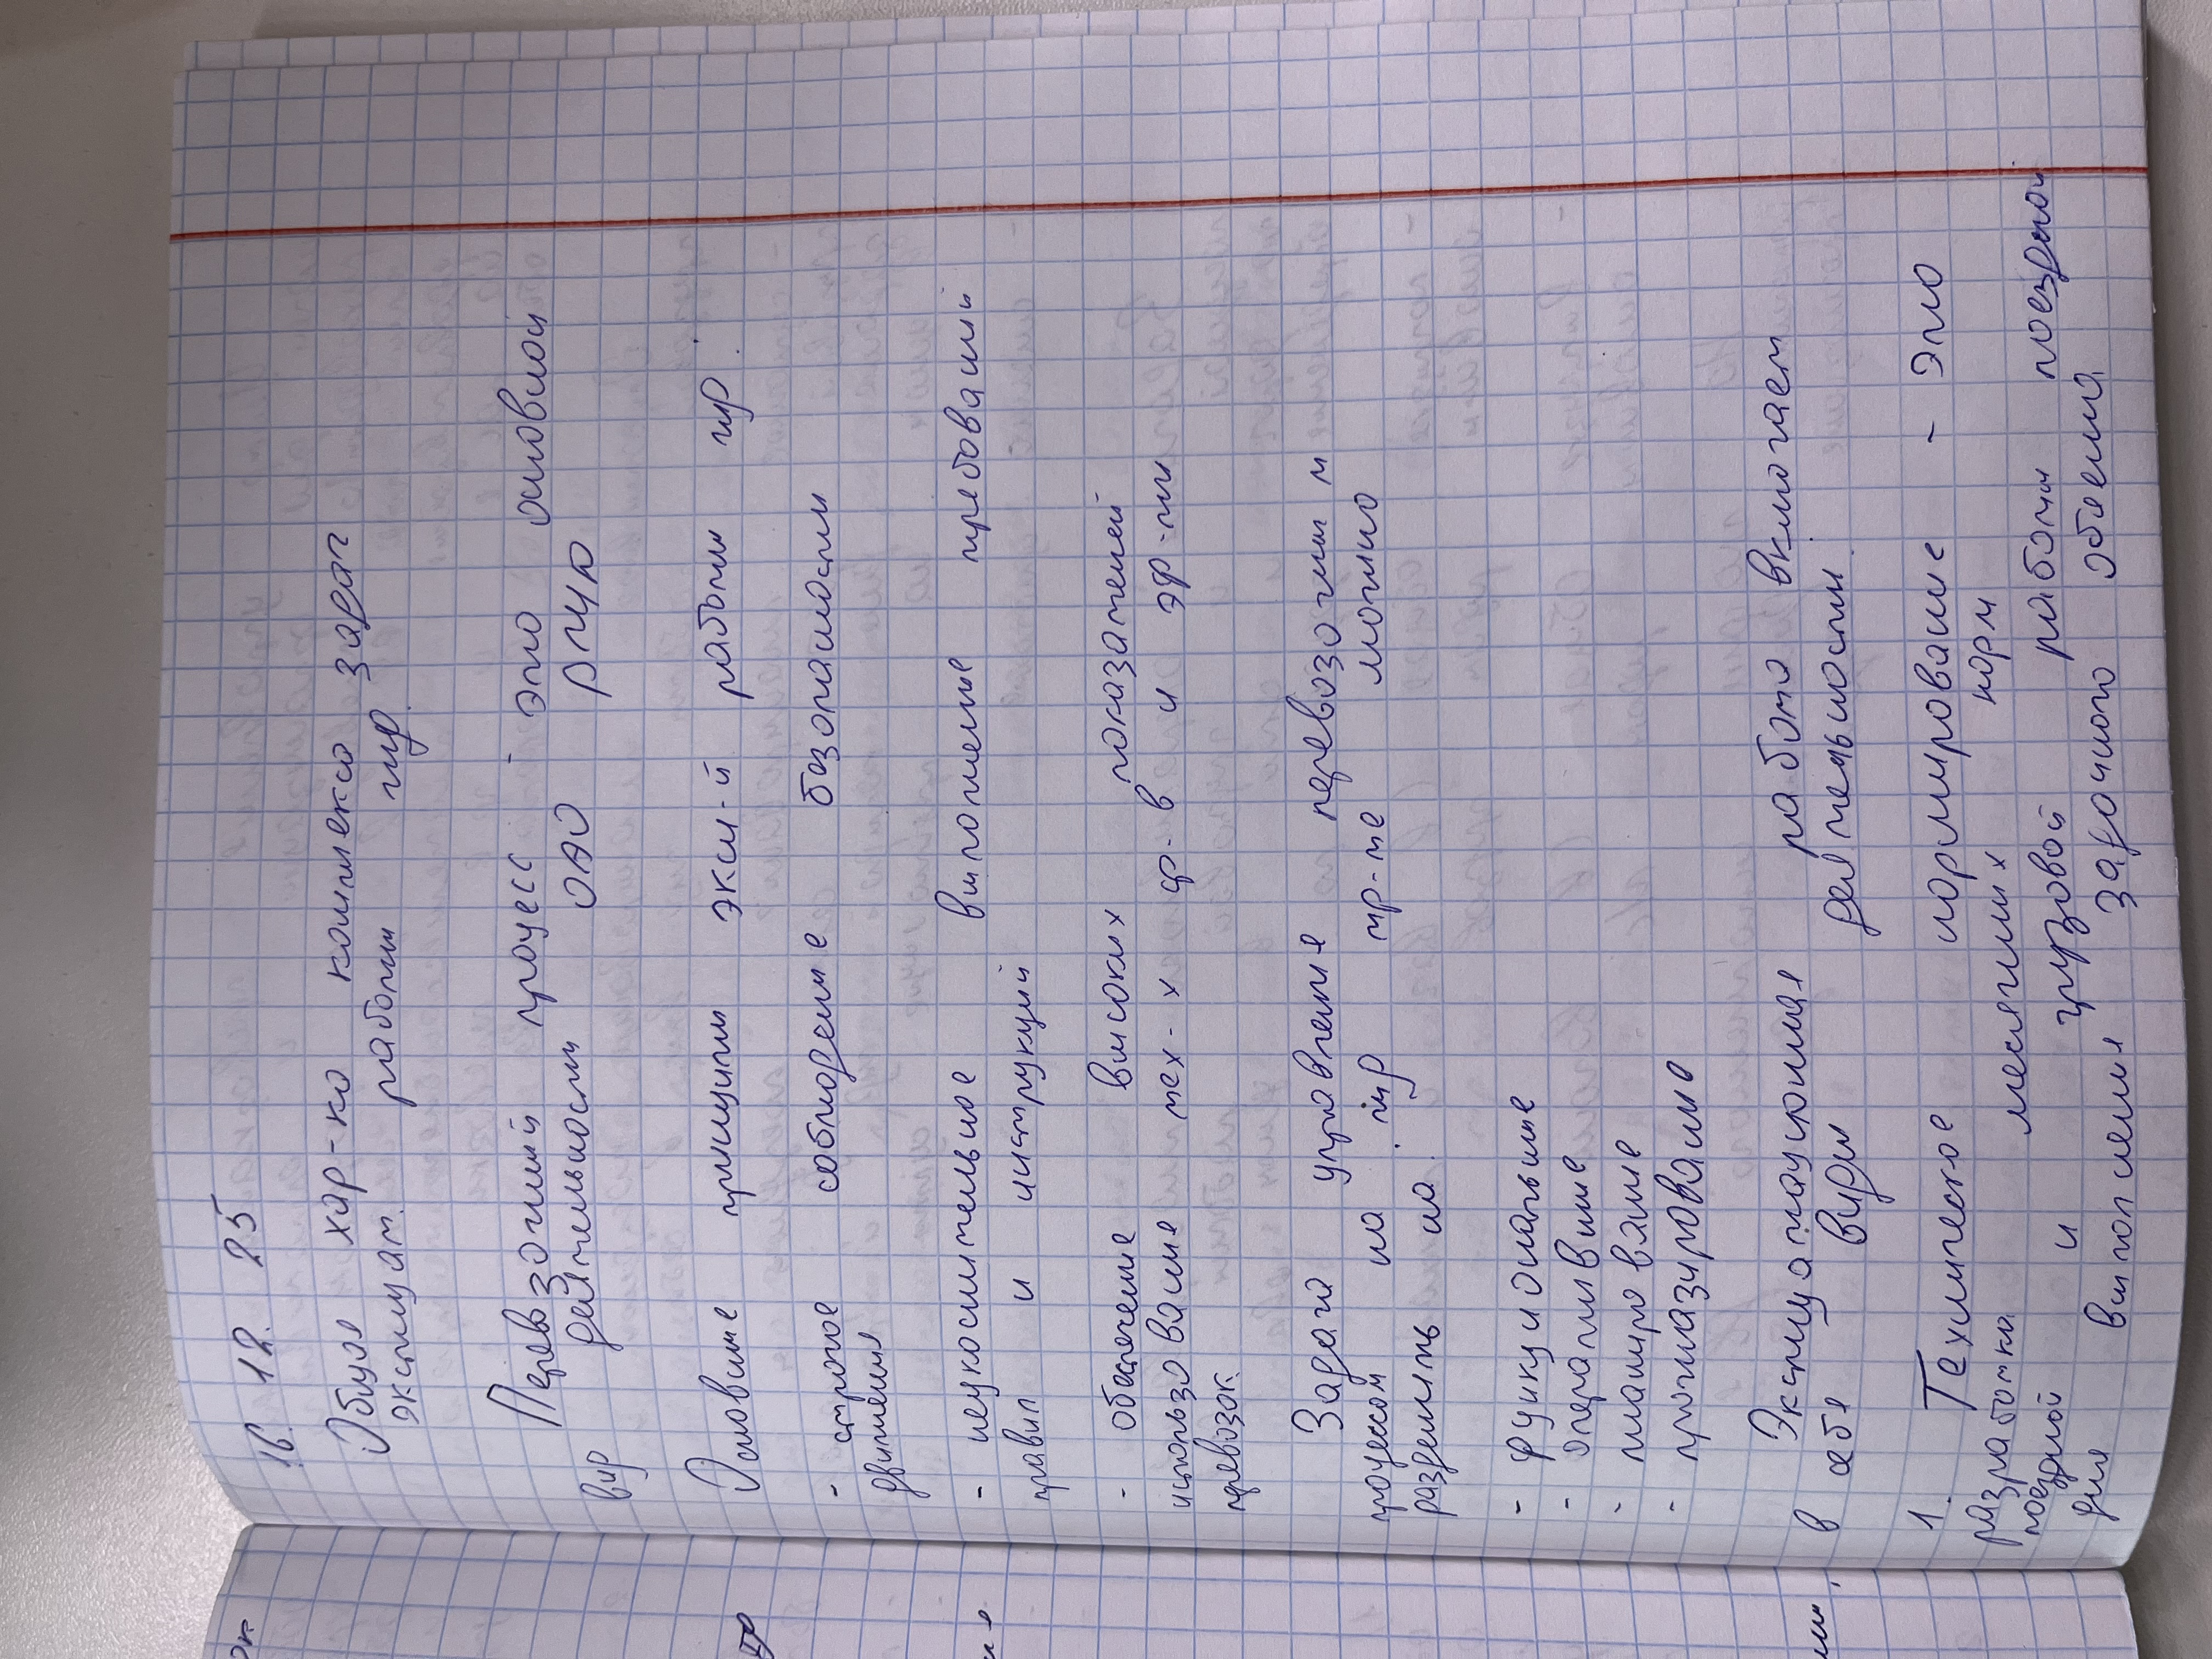 16. 12. 25
Общая хар-ка комплекса задач
эксплуат. работы жд.
Перевозочный процесс - это основной
вид деятельности ОАО РЖД
Основные принципы экс-й работы жд.
- строгое соблюдение безопасности
движения
- неукоснительное выполнение требований
правил и инструкций
- обеспечение высоких показателей
использования тех-х ср-в и эф-ти
перевозок.
Задачи управления перевозочным
процессом на жд тр-те можно
разделить на:
- функциональные
- оперативные
- планирование
- прогнозирование
Эксплуатационная работа включает
в себя виды деятельности.
1. Техническое нормирование - это
разработка месячных норм
поездной и грузовой работы поездной
для выполнения заданного объема